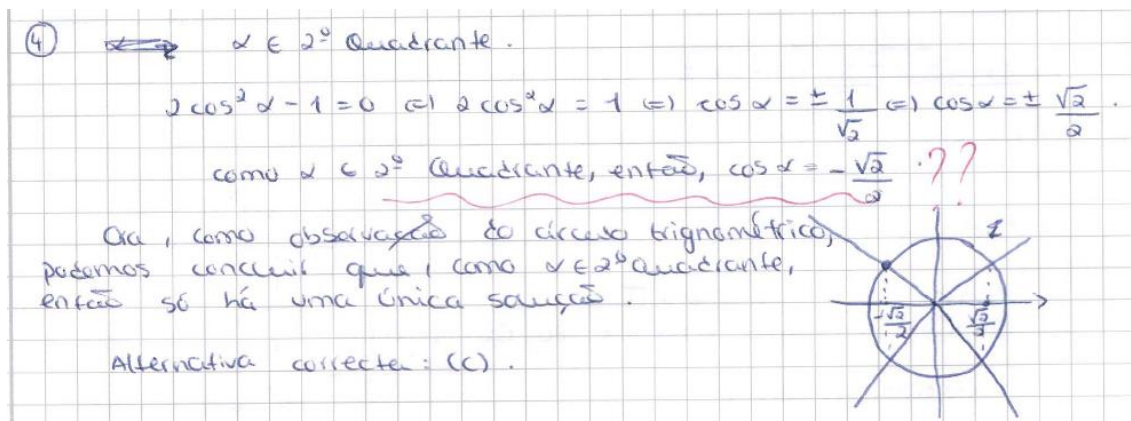 ④ α ∈ 2º Quadrante.
2 cos² α - 1 = 0 (=) 2 cos² α = 1 (=) cos α = ± 1/√2 (=) cos α = ± √2/2.
como α ∈ 2º Quadrante, então, cos α = - √2/2. ??
Ora, como observação do círculo trignométrico,
podemos concluir que, como α ∈ 2º Quadrante,
então só há uma única solução.
-√2/2 √2/2
Alternativa correcta: (C).